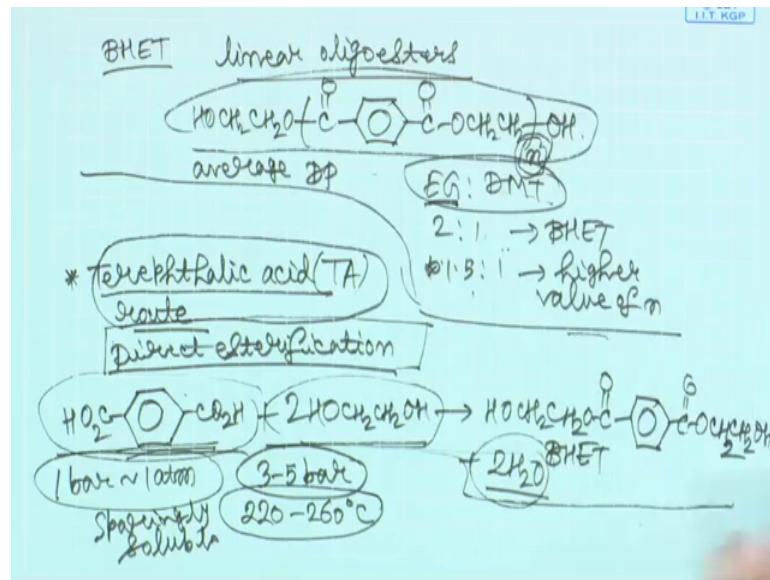 I.I.T. KGP
BHET linear oligoesters
O O
HOCH2CH2O-(-C-⌬-C-OCH2CH2-)-OH.
n
average DP
EG : DMT
2 : 1 → BHET
1.5 : 1 → higher
value of n
* Terephthalic acid (TA)
route
Direct esterification
HO2C-⌬-CO2H + 2HOCH2CH2OH → HOCH2CH2O-C-⌬-C-OCH2CH2OH
O O
2
+ 2H2O BHET
1 bar ~ 1 atm 3-5 bar
Sparingly 220-260°C
soluble